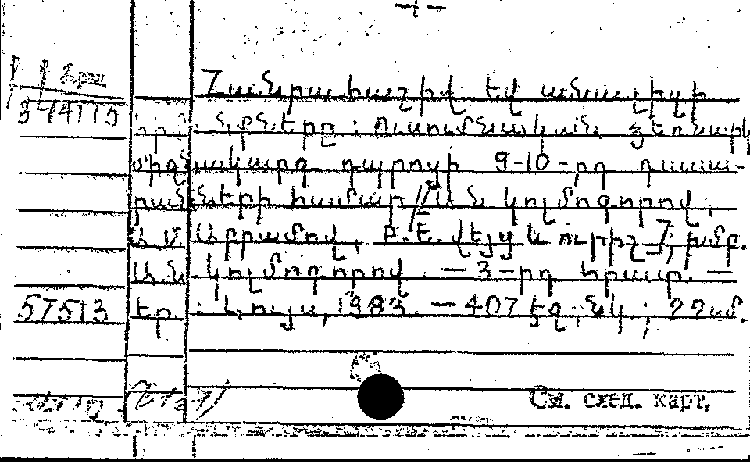 Հանրահաշիվ եվ անալիզի
նրբները : Ուսումնական ձեռնարկ
միջնակարգ դպրոցի 9-10-րդ դասա-
րանների համար / Ա.Ն. Կոլմոգորով,
Ա.Մ. Աբրամով, Բ.Ե. Վեյց և ուրիշ.; խմբ.
Ա.Ն. Կոլմոգորով. — 3-րդ հրատ. —
57513 Եր. : Լույս, 1983. — 407 էջ, նկ ; 22սմ.
См. след. карт.